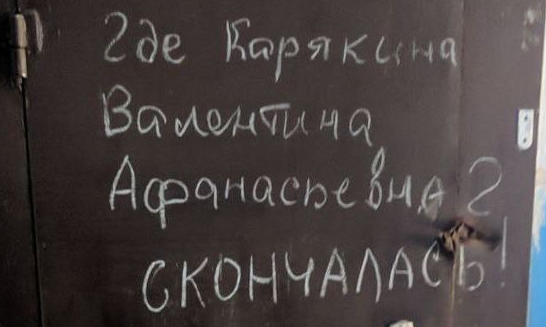 Где Карякина
Валентина
Афанасьевна?
СКОНЧАЛАСЬ!